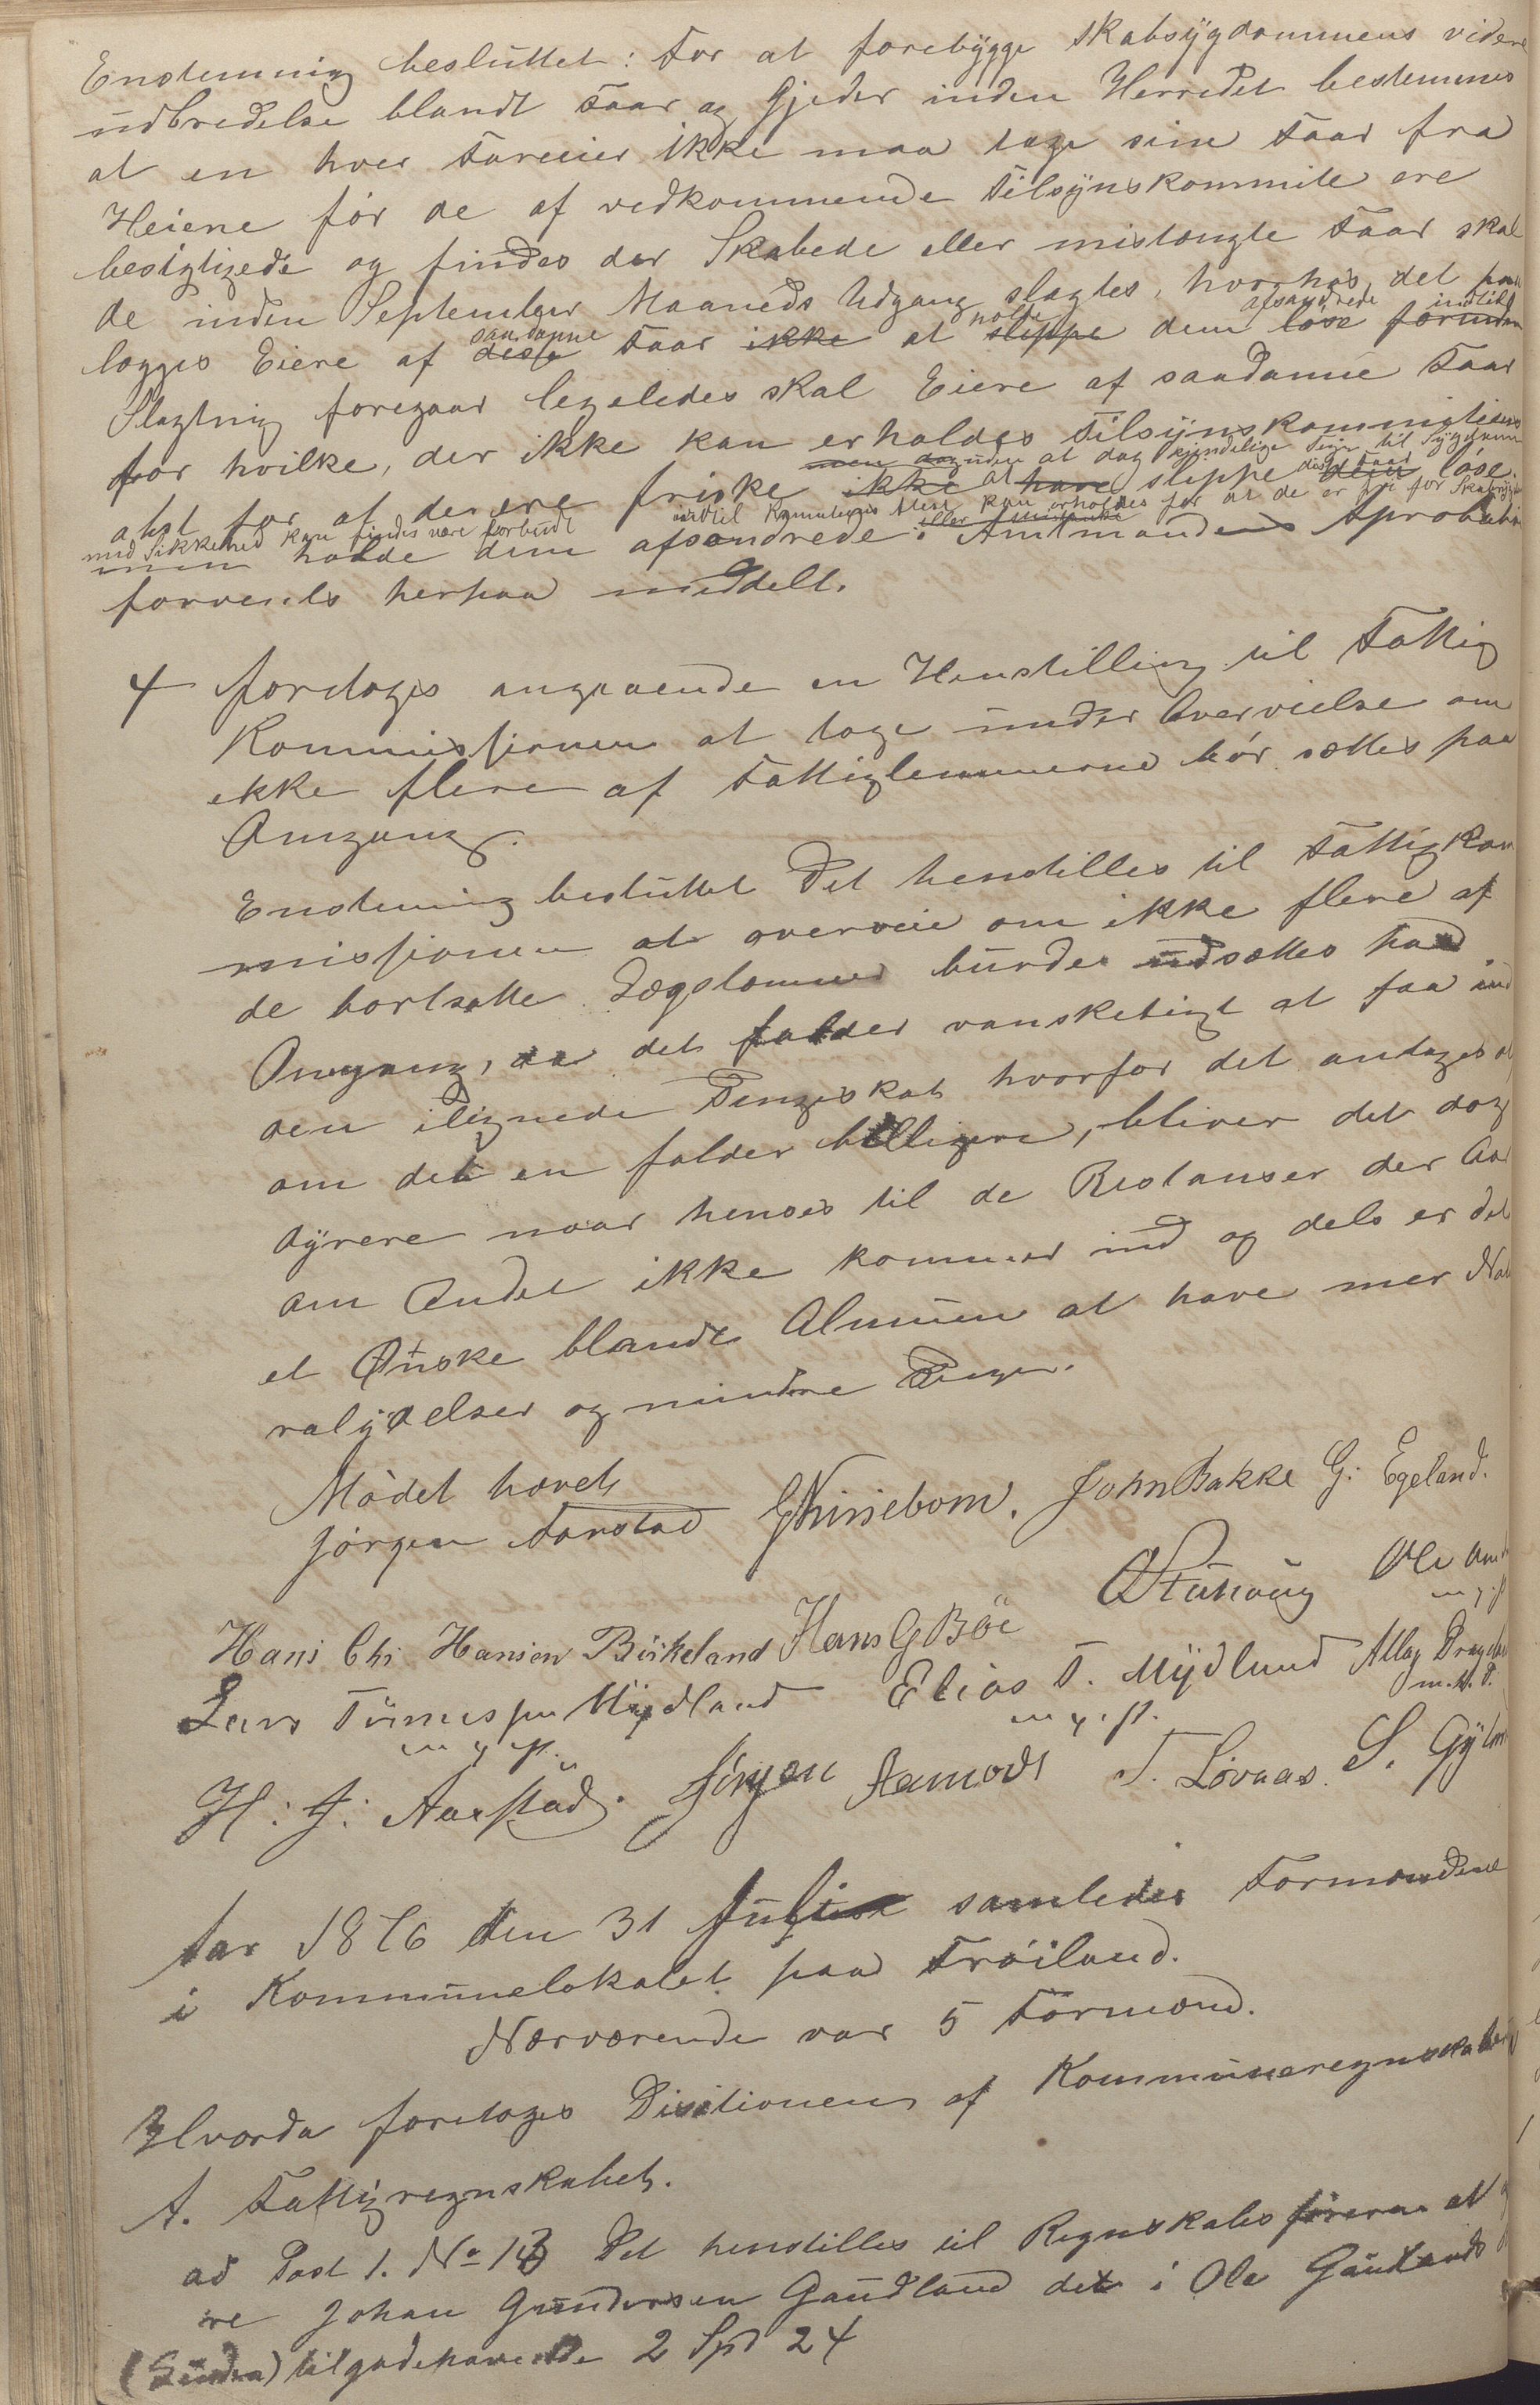 Enstemmig besluttet: For at forebygge Skabsygdommens videre
udbredelse blandt Faar og Gjeder inden Herredet bestemmes
at en hver Fareeier ikke maa tage sine Faar fra
Heiene før de af vedkommende Tilsynskommite ere
besigtigede og findes der Skabede eller mistænkte Faar skal
de inden September Maaneds Udgang slagtes, hvorhos det paa
saadanne holde afsondrede indtil
lægges Eiere af disse Faar ikke at slippe dem løse forinden
Slagtning foregaar legeledes skal Eiere af saadanne Faar
for hvilke, der ikke kan erholdes Tilsynskommitiens
men uden at dog kjendelige Tegn til Sygdom
atest for at de ere friske ikke at have slippe dem løse.
med Sikkerhed kan findes være forbudt indtil Komiteens Atest kan erholdes for at de er fri for Skabsyge
men holde dem afsondrede. Amtmandens Aprobation
forventes herpaa meddelt.
4 foretoges angaaende en Henstilling til Fattig
Kommissionen at tage under Overveielse om
ikke flere af Fattiglemmerne bør sættes paa
Omgang.
Enstemmig besluttet Det henstilles til Fattigkom
missionen at overveie om ikke flere af
de bortsatte Lægslemmer burde udsættes paa
Omgang, da det falder vanskeligt at faa ind
den ilignede Pengeskat hvorfor det antages at
om det en falder billigere, bliver det dog
dyrere naar henses til de Restanser der Aar
om Andet ikke kommer ind og dels er det
et Ønske blandt Almuen at have mer Natu
ralydelser og mindre Penge.
Mødet hævet
Jørgen Farstad John Bakke G: Egeland.
Ole
Hans Chr Hansen Birkeland Hans G Böe
Lars Tønnessen Mydland Elias T. Mydlund Atlag
m. p. P. m. p. P. m. p. P.
H: J: Aarstad. Jörgen Aamodt T. Løvaas. S.
Aar 1876 den 31 Juli samledes Formændene
i Kommunelokalet paa Frøiland.
Nærværende var 5 Formænd.
Hvorda foretoges Disitionen af Kommuneregnskabet
A. Fattigregnskabet.
ad Post 1. No 13 Det henstilles til Regnskabsføreren at
re Johan Gundersen Gaudland det i Ole Gaudlands
(Søndre) tilgodehavende 2 Spd 24